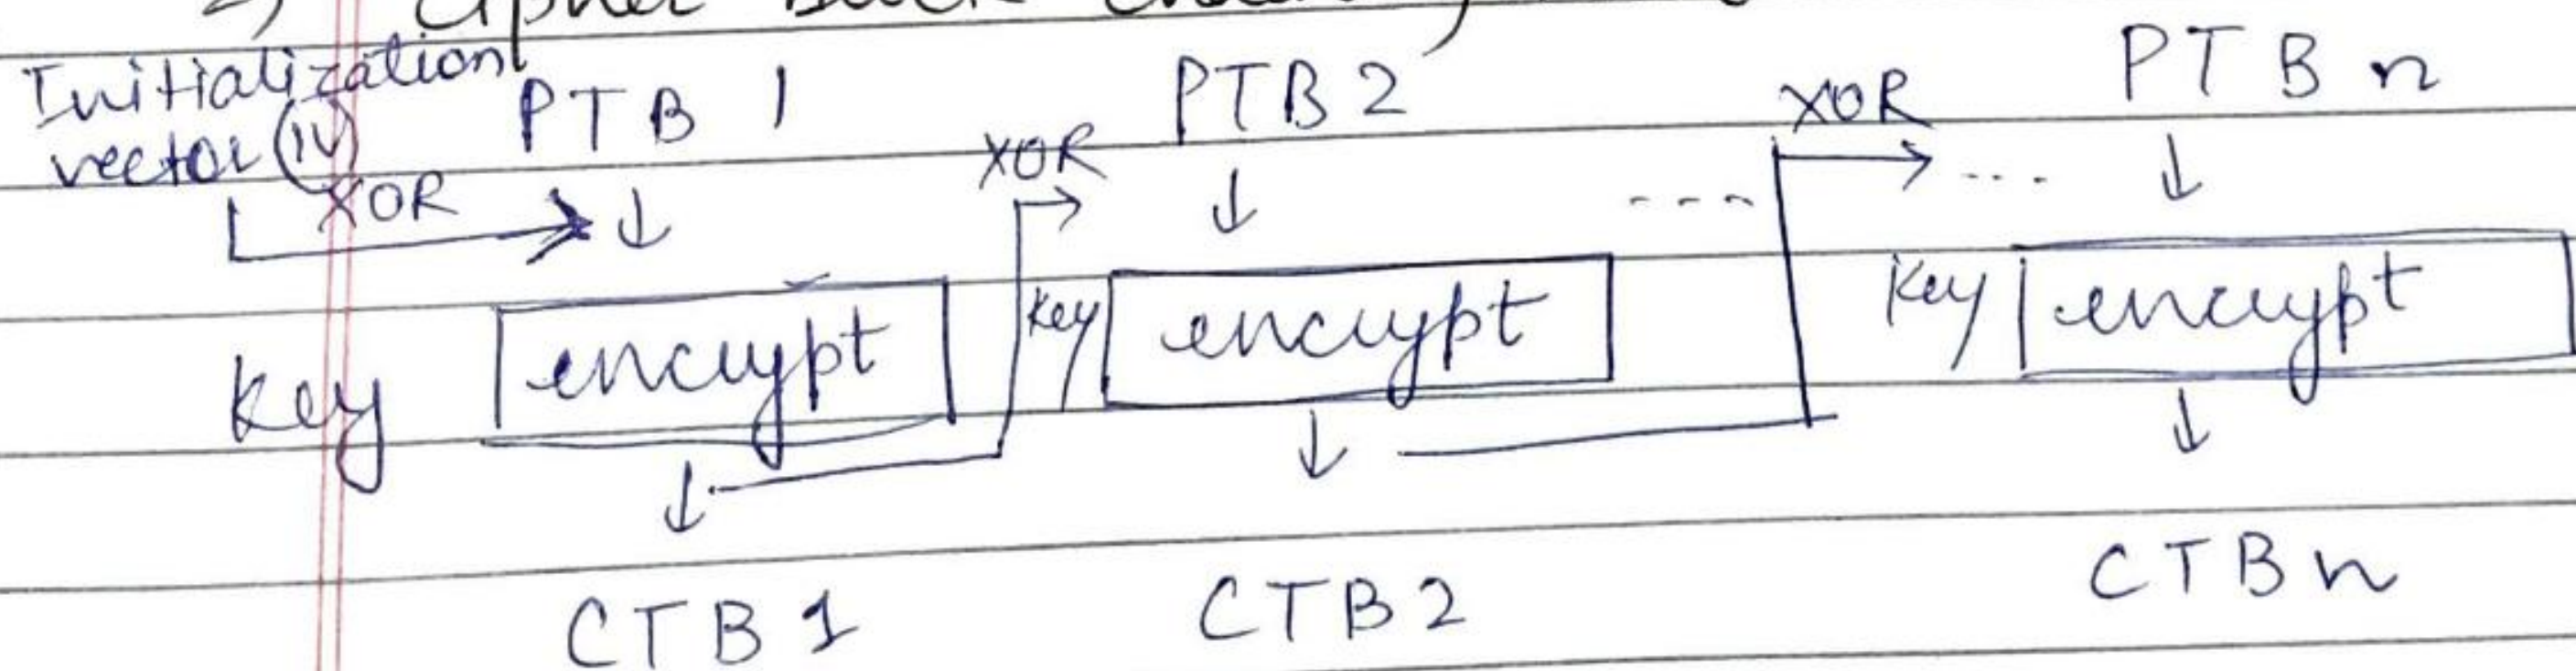 Initialization PTB 1 PTB 2 XOR PTB n
vector (IV) XOR
XOR
Key encrypt Key encrypt Key encrypt
CTB 1 CTB 2 CTB n